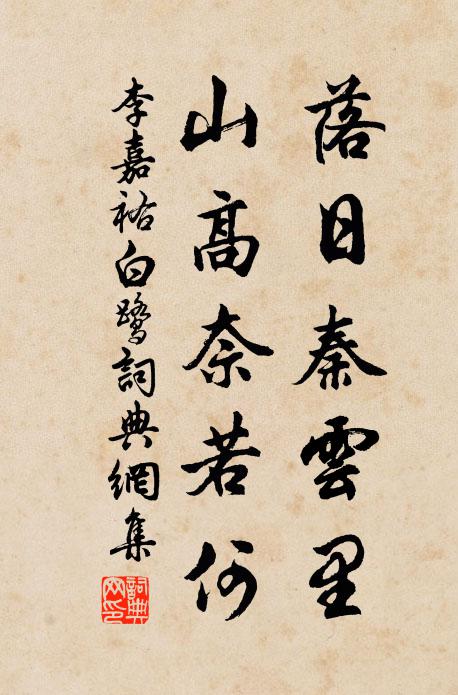 落日秦雲里
山高奈若何
李嘉祐白鹭詞典網集
詞典網印